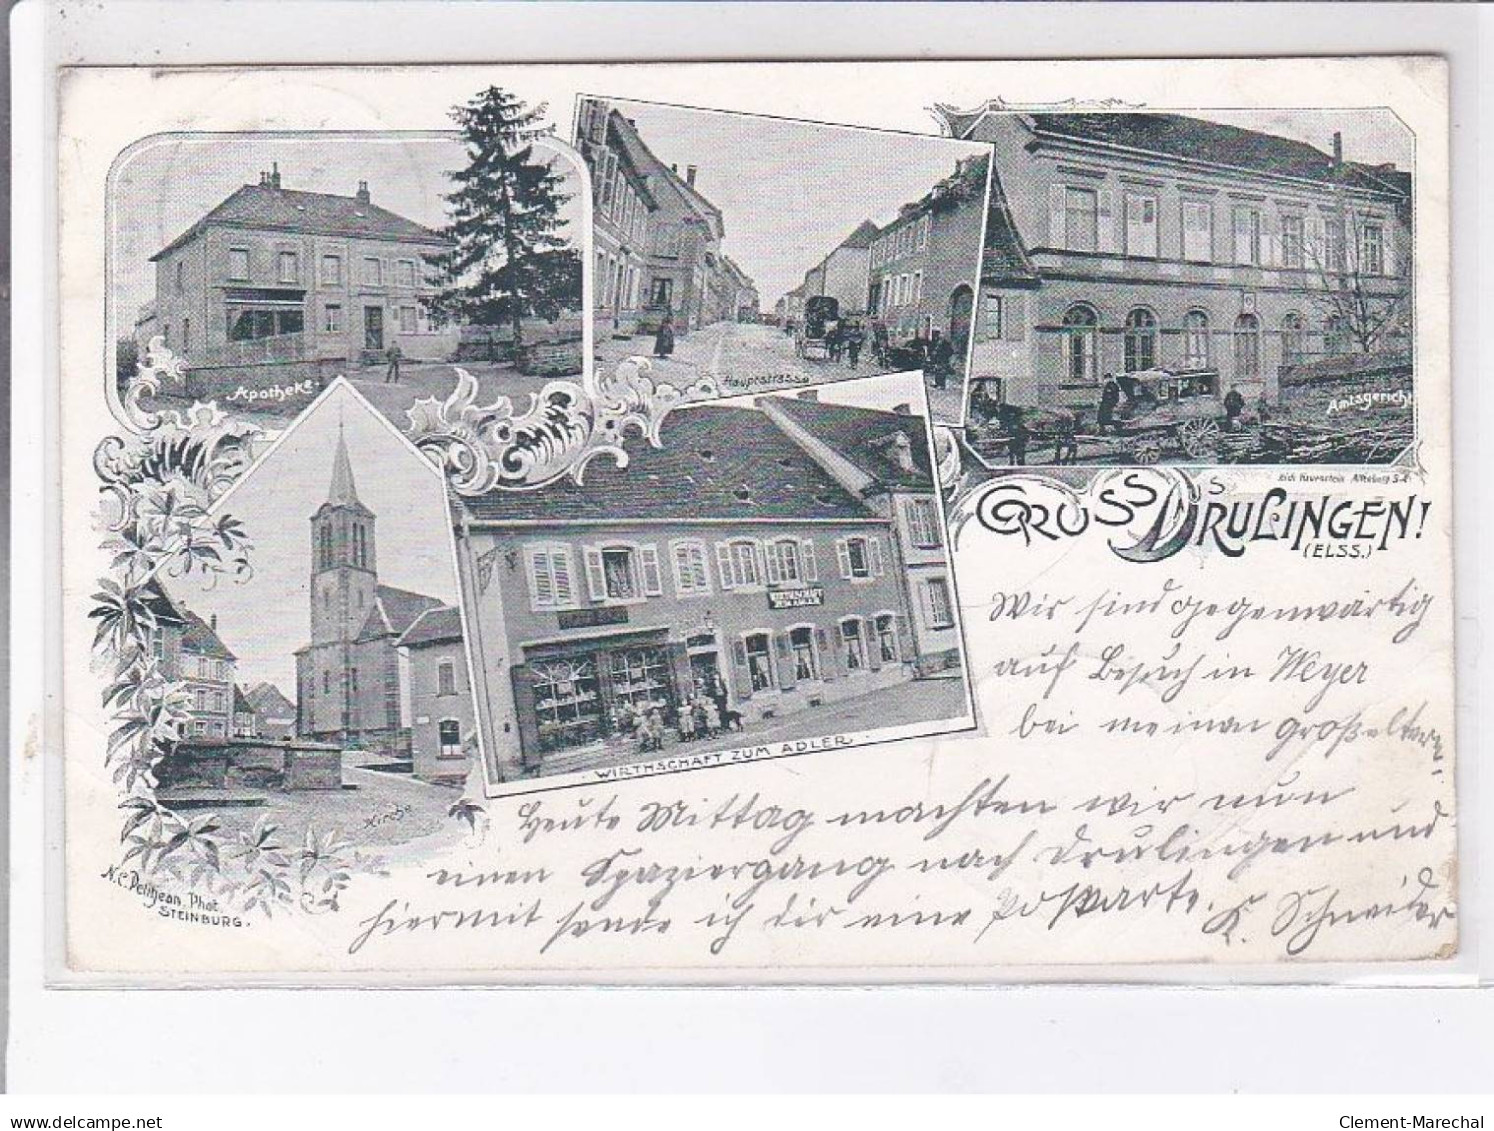 Apotheke
Hauptstrasse
Amtsgericht
GRUSS AUS DRULINGEN!
(ELSS.)
WIRTHSCHAFT ZUM ADLER
WIRTHSCHAFT ZUM ADLER.
Kirche
N. C. Petitjean, Phot.
STEINBURG.
Wir sind gegenwärtig
auf Besuch in Weyer
bei meinen großeltern.
Heute Mittag machten wir nun
einen Spaziergang nach Drulingen und
hiermit sende ich dir eine Postkarte.
E. Schneider
delcampe.net
Clement-Marechal